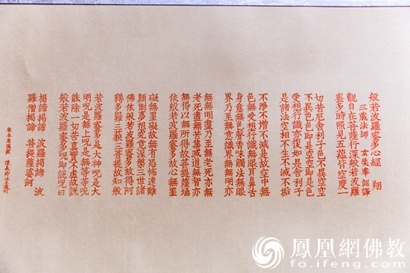 般若波羅蜜多心經
三藏法師玄奘奉詔譯
觀自在菩薩行深般若波羅
蜜多時照見五蘊皆空度一
切苦厄舍利子色不異空空
不異色色即是空空即是色
受想行識亦復如是舍利子
是諸法空相不生不滅不垢
不淨不增不減是故空中無
色無受想行識無眼耳鼻舌
身意無色聲香味觸法無眼
界乃至無意識界無無明亦
無無明盡乃至無老死亦無
老死盡無苦集滅道無智亦
無得以無所得故菩提薩埵
依般若波羅蜜多故心無罣
礙無罣礙故無有恐怖遠離
顛倒夢想究竟涅槃三世諸
佛依般若波羅蜜多故得阿
耨多羅三藐三菩提故知般
若波羅蜜多是大神咒是大
明咒是無上咒是無等等咒
能除一切苦真實不虛故說
般若波羅蜜多咒即說咒曰
揭諦揭諦 波羅揭諦 波
羅僧揭諦 菩提薩婆訶
鳳凰網佛教
fo.ifeng.com